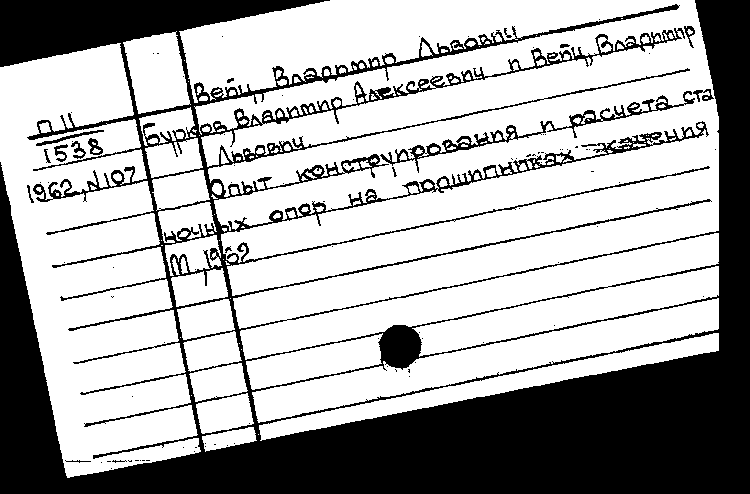 Вейц, Владимир Львович
П 11
Бурков, Владимир Алексеевич и Вейц, Владимир
1538
Львович.
1962, N107
Опыт конструирования и расчета ста
ночных опор на подшипниках качения.
М., 1962